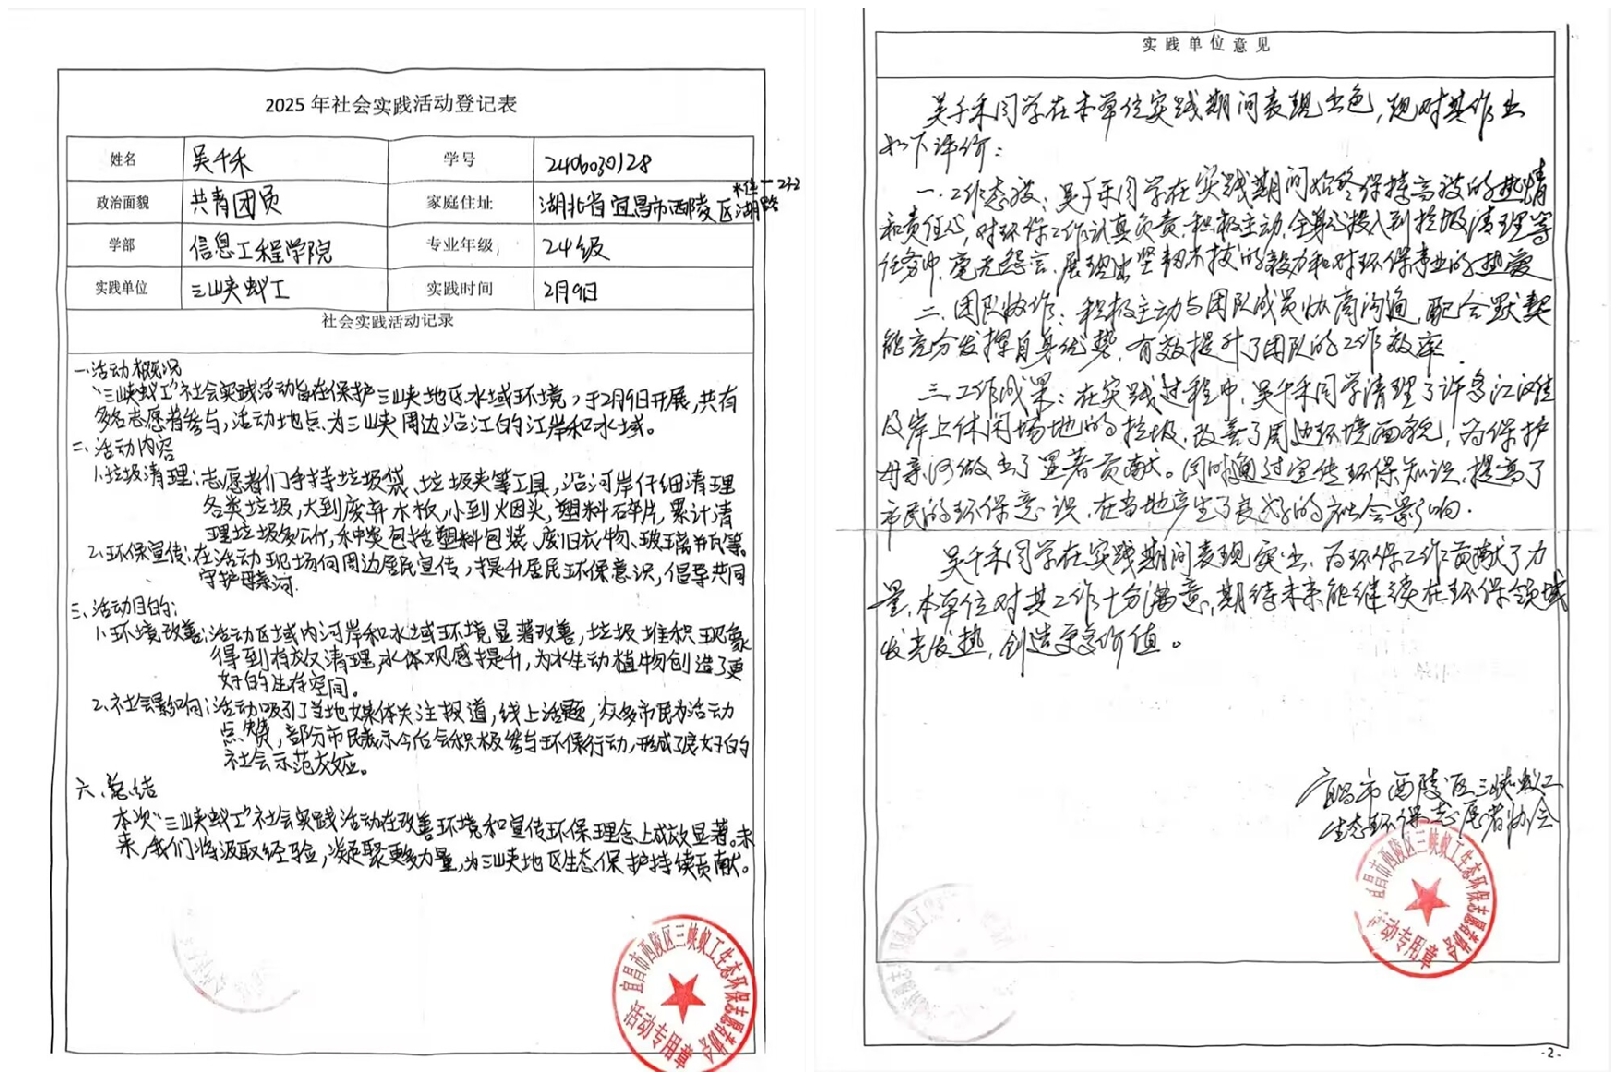 2025年社会实践活动登记表
姓名 吴千禾 学号 2406030128
政治面貌 共青团员 家庭住址 湖北省宜昌市西陵区湖
学部 信息工程学院 专业年级 24级
实践单位 三峡蚁工 实践时间 2月9日
社会实践活动记录
一.活动概况
"三峡蚁工"社会实践活动旨在保护三峡地区水域环境,于2月9日开展,共有
多名志愿者参与,活动地点为三峡周边沿江的江岸和水域。
二.活动内容
1.垃圾清理:志愿者们手持垃圾袋、垃圾夹等工具,沿河岸仔细清理
各类垃圾,大到废弃木板,小到烟头,塑料碎片,累计清
理垃圾多公斤,种类包括塑料包装、废旧衣物、玻璃瓶等。
2.环保宣传:在活动现场向周边居民宣传,提升居民环保意识,倡导共同
守护母亲河.
三.活动目的:
1.环境改善:活动区域内河岸和水域环境显著改善,垃圾堆积现象
得到有效清理,水体观感提升,为水生动植物创造了更
好的生存空间。
2.社会影响:活动吸引了当地媒体关注报道,线上话题,众多市民为活动
点赞,部分市民表示今后会积极参与环保行动,形成了良好的
社会示范效应。
六.总结
本次"三峡蚁工"社会实践活动在改善环境和宣传环保理念上成效显著。未
来,我们将汲取经验,凝聚更多力量,为三峡地区生态保护持续贡献。
宜昌市西陵区三峡蚁工生态环保志愿者协会
活动专用章
实践单位意见
吴千禾同学在本单位实践期间表现出色,现对其作出
如下评价:
一.工作态度:吴千禾同学在实践期间始终保持高度的热情
和责任心,对环保工作认真负责.积极主动,全身心投入到垃圾清理等
任务中,毫无怨言,展现出坚韧不拔的毅力和对环保事业的热爱
二.团队协作:积极主动与团队成员协商沟通,配合默契
能充分发挥自身优势,有效提升了团队的工作效率.
三.工作成果:在实践过程中,吴千禾同学清理了许多江滩
及岸上休闲场地的垃圾,改善了周边环境面貌,为保护
母亲河做出了显著贡献。同时通过宣传环保知识,提高了
市民的环保意识,在当地产生了良好的社会影响.
吴千禾同学在实践期间表现突出,为环保工作贡献了力
量,本单位对其工作十分满意,期待未来能继续在环保领域
发光发热,创造更多价值。
宜昌市西陵区三峡蚁工
生态环保志愿者协会
宜昌市西陵区三峡蚁工生态环保志愿者协会
活动专用章
-2-